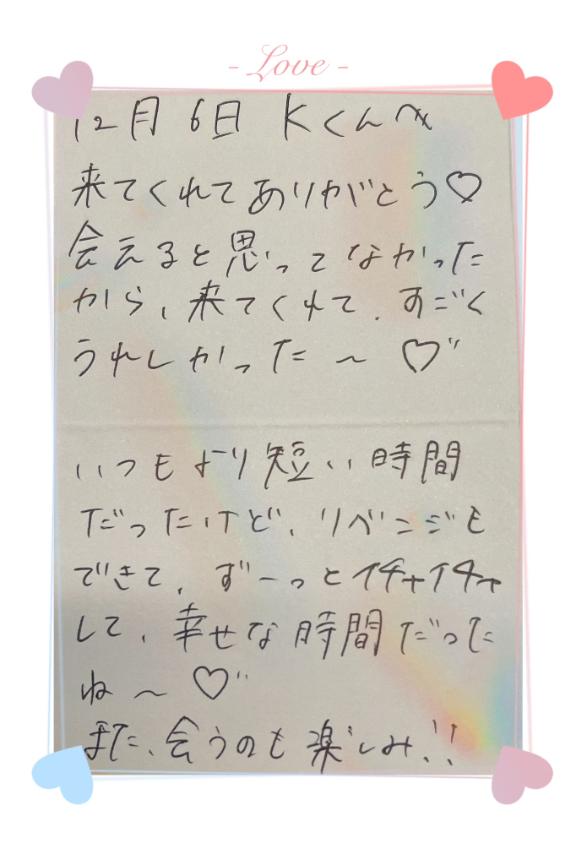 - Love -
12月 6日 Kくんへ
来てくれてありがとう♡
会えると思ってなかった
から、来てくれて、すごく
うれしかった〜♡"
いつもより短い時間
だったけど、リベンジも
できて、ずーっとイチャイチャ
して、幸せな時間だった
ね〜♡"
また、会うのも楽しみ!!